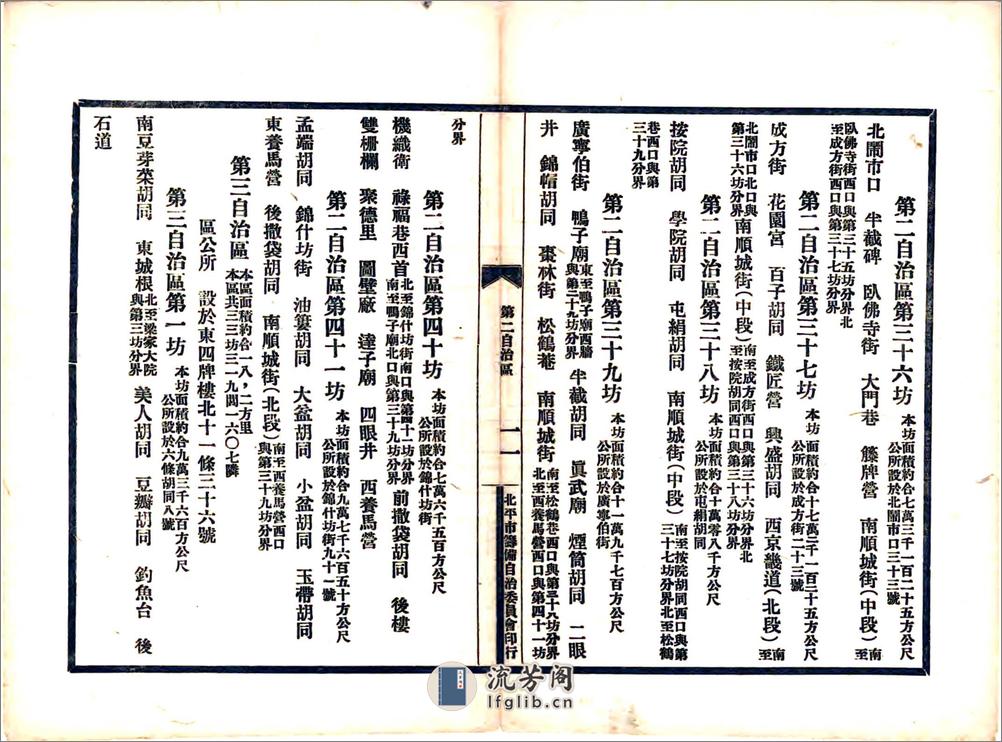 第二自治區第三十六坊 本坊面積約合七萬三千一百二十五方公尺 公所設於北鬧市口三十三號
北鬧市口 半截碑 臥佛寺街 大門巷 籐牌營 南順城街(中段) 南至
臥佛寺街西口與第三十五坊分界北至成方街西口與第三十七坊分界
第二自治區第三十七坊 本坊面積約合十七萬三千一百三十五方公尺 公所設於成方街二十三號
成方街 花園宮 百子胡同 鐵匠營 興盛胡同 西京畿道(北段) 南至
北鬧市口北口與第三十六坊分界 南順城街(中段) 南至成方街西口與第三十六坊分界北至按院胡同西口與第三十八坊分界
第二自治區第三十八坊 本坊面積約合十萬零八千方公尺 公所設於屯絹胡同
按院胡同 學院胡同 屯絹胡同 南順城街(中段) 南至按院胡同西口與第三十七坊分界北至松鶴
巷西口與第三十九坊分界
第二自治區第三十九坊 本坊面積約合十一萬九千七百方公尺 公所設於廣寧伯街
廣寧伯街 鴨子廟 東至鴨子廟西牆與第二十九坊分界 半截胡同 眞武廟 煙筒胡同 二眼
井 錦帽胡同 棗林街 松鶴菴 南順城街 南至松鶴巷西口與第三十八坊分界北至西養馬營西口與第四十一坊
第二自治區
一一
北平市籌備自治委員會印行
分界
第二自治區第四十坊 本坊面積約合七萬六千五百方公尺 公所設於錦什坊街
機織衛 祿福巷西首 北至錦什坊街南口與第四十一坊分界南至鴨子廟北口與第三十九坊分界 前撒袋胡同 後樓
雙栅欄 聚德里 圖壁廠 達子廟 四眼井 西養馬營
第二自治區第四十一坊 本坊面積約合九萬七千六百五十方公尺 公所設於錦什坊街九十一號
孟端胡同 錦什坊街 油簍胡同 大盆胡同 小盆胡同 玉帶胡同
東養馬營 後撒袋胡同 南順城街(北段) 南至西養馬營西口與第三十九坊分界
第三自治區 本區面積約合一八,二方里 本區共三三坊三一九閭一六〇七鄰
區公所 設於東四牌樓北十一條三十六號
第三自治區第一坊 本坊面積約合九萬三千六百方公尺 公所設於六條胡同八號
南豆芽菜胡同 東城根 北至梁家大院與第三坊分界 美人胡同 豆瓣胡同 釣魚台 後
石道
流芳阁
lfglib.cn